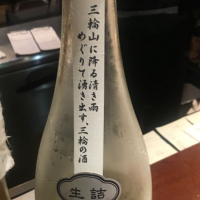 三輪山に降る清き雨
めぐりて湧き出す、三輪の酒
生詰